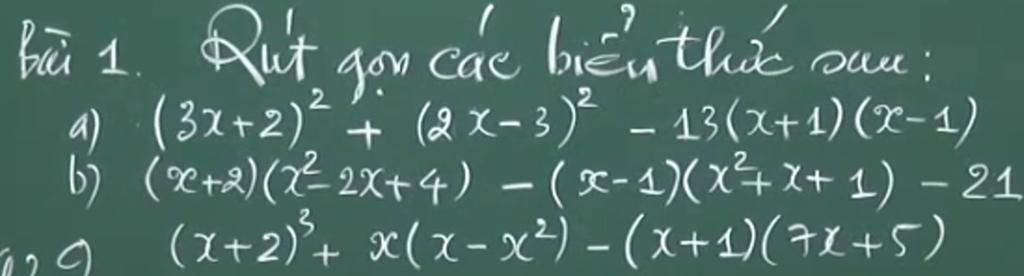 Bài 1. Rút gọn các biểu thức sau:
a) (3x+2)² + (2x-3)² - 13(x+1)(x-1)
b) (x+2)(x²-2x+4) - (x-1)(x²+x+1) - 21
(x+2)³ + x(x-x²) - (x+1)(7x+5)